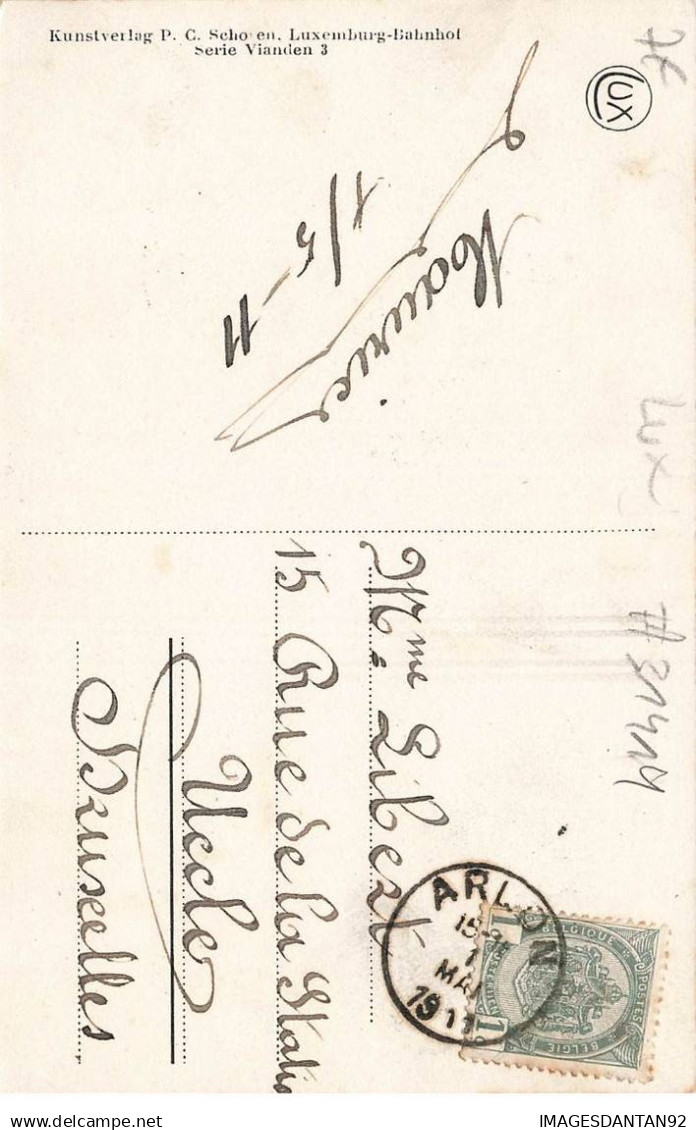 Kunstverlag P. C. Schoren, Luxemburg-Bahnhof
Serie Vianden 3
LUX
Maurice
1/5-11
Lux
#31419
Mme Libert
15 Rue de la Station
Uccle
Bruxelles
ARLON
1
MAI
1911
BELGIQUE
POSTES
BELGIE
1
1
IMAGESDANTAN92